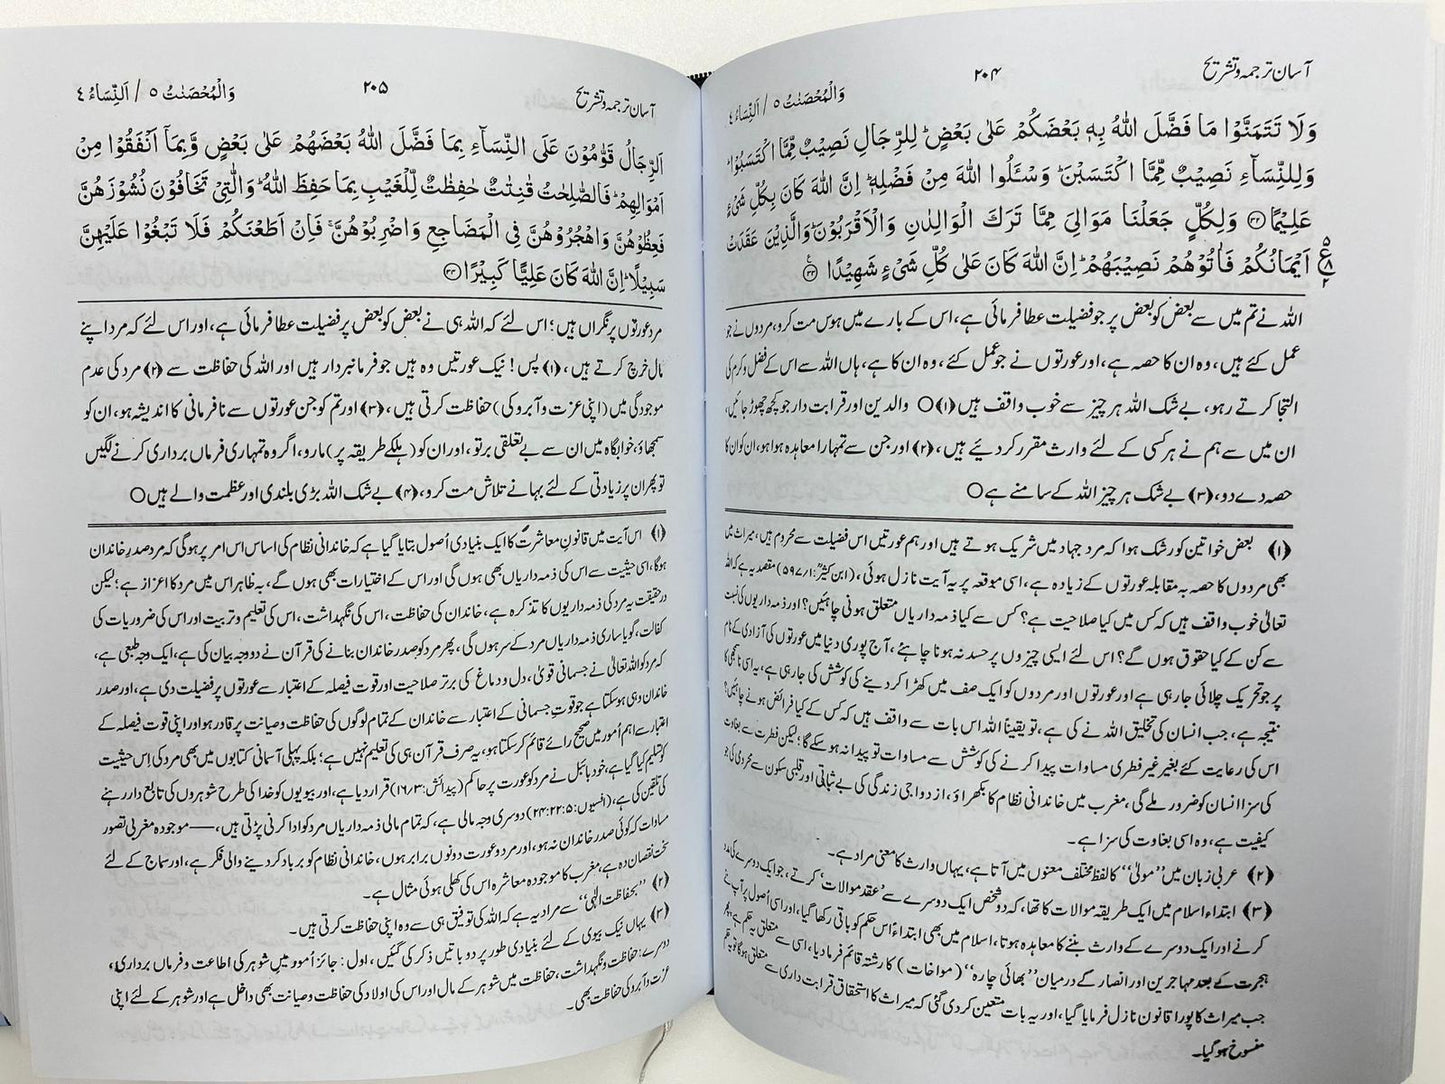 آسان ترجمہ و تشریح
۲۰۴
وَالْمُحْصَنٰتُ ٥ / اَلنِّسَاءُ ٤
وَلَا تَتَمَنَّوْا مَا فَضَّلَ اللّٰهُ بِهٖ بَعْضَكُمْ عَلٰى بَعْضٍ ؕ لِلرِّجَالِ نَصِيْبٌ مِّمَّا اكْتَسَبُوْا ؕ
وَلِلنِّسَآءِ نَصِيْبٌ مِّمَّا اكْتَسَبْنَ ؕ وَسْـَٔلُوا اللّٰهَ مِنْ فَضْلِهٖ ؕ اِنَّ اللّٰهَ كَانَ بِكُلِّ شَيْءٍ
عَلِيْمًا ۳۲ وَلِكُلٍّ جَعَلْنَا مَوَالِيَ مِمَّا تَرَكَ الْوَالِدٰنِ وَالْاَقْرَبُوْنَ ؕ وَالَّذِيْنَ عَقَدَتْ
اَيْمَانُكُمْ فَاٰتُوْهُمْ نَصِيْبَهُمْ ؕ اِنَّ اللّٰهَ كَانَ عَلٰى كُلِّ شَيْءٍ شَهِيْدًا ۳۳
اللہ نے تم میں سے بعض کو بعض پر جو فضیلت عطا فرمائی ہے، اس کے بارے میں ہوس مت کرو، مردوں نے جو
عمل کئے ہیں، وہ ان کا حصہ ہے، اور عورتوں نے جو عمل کئے، وہ ان کا ہے، ہاں اللہ سے اس کے فضل و کرم کی
التجا کرتے رہو، بے شک اللہ ہر چیز سے خوب واقف ہیں ﴿۱﴾ ○ والدین اور قرابت دار جو کچھ چھوڑ جائیں،
ان میں سے ہم نے ہر کسی کے لئے وارث مقرر کر دیئے ہیں، ﴿۲﴾ اور جن سے تمہارا معاہدہ ہوا ہو، ان کو ان کا
حصہ دے دو، ﴿۳﴾ بے شک ہر چیز اللہ کے سامنے ہے ○
﴿۱﴾ بعض خواتین کو رشک ہوا کہ مرد جہاد میں شریک ہوتے ہیں اور ہم عورتیں اس فضیلت سے محروم ہیں، میراث میں
بھی مردوں کا حصہ بہ مقابلہ عورتوں کے زیادہ ہے، اسی موقعہ پر یہ آیت نازل ہوئی، (ابن کثیر: ۱/ ۵۹۷) مقصد یہ ہے کہ اللہ
تعالیٰ خوب واقف ہیں کہ کس میں کیا صلاحیت ہے؟ کس سے کیا ذمہ داریاں متعلق ہونی چاہئیں؟ اور ذمہ داریوں کی نسبت
سے کن کے کیا حقوق ہوں گے؟ اس لئے ایسی چیزوں پر حسد نہ ہونا چاہئے، آج پوری دنیا میں عورتوں کی آزادی کے نام
پر جو تحریک چلائی جا رہی ہے اور عورتوں اور مردوں کو ایک صف میں کھڑا کر دینے کی کوشش کی جا رہی ہے، یہ اسی ناسمجھی کا
نتیجہ ہے، جب انسان کی تخلیق اللہ نے کی ہے، تو یقیناً اللہ اس بات سے واقف ہیں کہ کس کے کیا فرائض ہونے چاہئیں؟
اس کی رعایت کئے بغیر غیر فطری مساوات پیدا کرنے کی کوشش سے مساوات تو پیدا نہ ہو سکے گا؛ لیکن فطرت سے بغاوت
کی سزا انسان کو ضرور ملے گی، مغرب میں خاندانی نظام کا بکھراؤ، ازدواجی زندگی کی بے ثباتی اور قلبی سکون سے محرومی کی جو
کیفیت ہے، وہ اسی بغاوت کی سزا ہے۔
﴿۲﴾ عربی زبان میں ’’مولیٰ‘‘ کا لفظ مختلف معنوں میں آتا ہے، یہاں وارث کا معنی مراد ہے۔
﴿۳﴾ ابتداء اسلام میں ایک طریقہ موالات کا تھا، کہ دو شخص ایک دوسرے سے ’عقد موالات‘ کرتے، جو ایک دوسرے کی مدد
کرنے اور ایک دوسرے کے وارث بننے کا معاہدہ ہوتا، اسلام میں بھی ابتداءً اس حکم کو باقی رکھا گیا، اور اسی اُصول پر آپ نے
ہجرت کے بعد مہاجرین اور انصار کے درمیان ’’بھائی چارہ‘‘ (مواخات) کا رشتہ قائم فرما دیا، اسی سے متعلق یہ حکم ہے، پھر
جب میراث کا پورا قانون نازل فرمایا گیا، اور یہ بات متعین کر دی گئی کہ میراث کا استحقاق قرابت داری سے متعلق ہوگا تو یہ حکم
منسوخ ہو گیا۔
آسان ترجمہ و تشریح
۲۰۵
وَالْمُحْصَنٰتُ ٥ / اَلنِّسَاءُ ٤
اَلرِّجَالُ قَوّٰمُوْنَ عَلَى النِّسَآءِ بِمَا فَضَّلَ اللّٰهُ بَعْضَهُمْ عَلٰى بَعْضٍ وَّبِمَآ اَنْفَقُوْا مِنْ
اَمْوَالِهِمْ ؕ فَالصّٰلِحٰتُ قٰنِتٰتٌ حٰفِظٰتٌ لِّلْغَيْبِ بِمَا حَفِظَ اللّٰهُ ؕ وَالّٰتِيْ تَخَافُوْنَ نُشُوْزَهُنَّ
فَعِظُوْهُنَّ وَاهْجُرُوْهُنَّ فِي الْمَضَاجِعِ وَاضْرِبُوْهُنَّ ۚ فَاِنْ اَطَعْنَكُمْ فَلَا تَبْغُوْا عَلَيْهِنَّ
سَبِيْلًا ؕ اِنَّ اللّٰهَ كَانَ عَلِيًّا كَبِيْرًا ۳۴
مرد عورتوں پر نگراں ہیں؛ اس لئے کہ اللہ ہی نے بعض کو بعض پر فضیلت عطا فرمائی ہے، اور اس لئے کہ مرد اپنے
مال خرچ کرتے ہیں، ﴿۱﴾ پس! نیک عورتیں وہ ہیں جو فرمانبردار ہیں اور اللہ کی حفاظت سے ﴿۲﴾ مرد کی عدم
موجودگی میں (اپنی عزت و آبرو کی) حفاظت کرتی ہیں، ﴿۳﴾ اور تم کو جن عورتوں سے نافرمانی کا اندیشہ ہو، ان کو
سمجھاؤ، خوابگاہ میں ان سے بے تعلقی برتو، اور ان کو (ہلکے طریقہ پر) مارو، اگر وہ تمہاری فرماں برداری کرنے لگیں
تو پھر ان پر زیادتی کے لئے بہانے تلاش مت کرو، ﴿۴﴾ بے شک اللہ بڑی بلندی اور عظمت والے ہیں ○
﴿۱﴾ اس آیت میں قانونِ معاشرت کا ایک بنیادی اُصول بتایا گیا ہے کہ خاندانی نظام کی اساس اس امر پر ہوگی کہ مرد صدرِ خاندان
ہوگا، اسی حیثیت سے اس کی ذمہ داریاں بھی ہوں گی اور اس کے اختیارات بھی ہوں گے، بہ ظاہر اس میں مرد کا اعزاز ہے؛ لیکن
درحقیقت یہ مرد کی ذمہ داریوں کا تذکرہ ہے، خاندان کی حفاظت، اس کی نگہداشت، اس کی تعلیم و تربیت اور اس کی ضروریات کی
کفالت، گویا ساری ذمہ داریاں مرد کے سر ہوں گی، پھر مرد کو صدر خاندان بنانے کی قرآن نے دو وجہ بیان کی ہے، ایک وجہ طبعی ہے،
کہ مرد کو اللہ تعالیٰ نے جسمانی قویٰ، دل و دماغ کی برتر صلاحیت اور قوت فیصلہ کے اعتبار سے عورتوں پر فضیلت دی ہے، اور صدر
خاندان وہی ہو سکتا ہے جو قوتِ جسمانی کے اعتبار سے خاندان کے تمام لوگوں کی حفاظت و صیانت پر قادر ہو اور اپنی قوت فیصلہ کے
اعتبار سے اہم اُمور میں صحیح رائے قائم کر سکتا ہو، یہ صرف قرآن ہی کی تعلیم نہیں ہے؛ بلکہ پہلی آسمانی کتابوں میں بھی مرد کی اِس حیثیت
کو تسلیم کیا گیا ہے، خود بائبل نے مرد کو عورت پر حاکم (پیدائش: ۳/۱۶) قرار دیا ہے، اور بیویوں کو خدا کی طرح شوہروں کی تابع دار رہنے
کی تلقین کی ہے، (افسیوں: ۵: ۲۲، ۲۴) دوسری وجہ مالی ہے، کہ تمام مالی ذمہ داریاں مرد کو ادا کرنی پڑتی ہیں، —— موجودہ مغربی تصور
مساوات کہ کوئی صدر خاندان نہ ہو، اور مرد و عورت دونوں برابر ہوں، خاندانی نظام کو برباد کر دینے والی فکر ہے، اور سماج کے لئے
سخت نقصان دہ ہے، مغرب کا موجودہ معاشرہ اس کی کھلی ہوئی مثال ہے۔
﴿۲﴾ ’’بحفاظت الٰہی‘‘ سے مراد یہ ہے کہ اللہ کی توفیق ہی سے وہ اپنی حفاظت کرتی ہیں۔
﴿۳﴾ یہاں نیک بیوی کے لئے بنیادی طور پر دو باتیں ذکر کی گئیں، اول: جائز اُمور میں شوہر کی اطاعت و فرماں برداری،
دوسرے: حفاظت و نگہداشت، حفاظت میں شوہر کے مال اور اس کی اولاد کی حفاظت و صیانت بھی داخل ہے اور شوہر کے لئے اپنی
عزت و آبرو کی حفاظت بھی۔